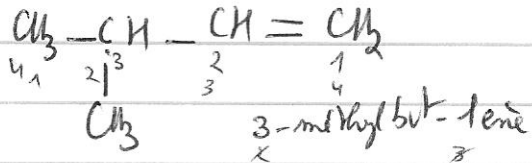 CH3 – CH – CH = CH2
4 1 2 3 2 1
3 4
CH3 3-méthylbut-1ène
x 3